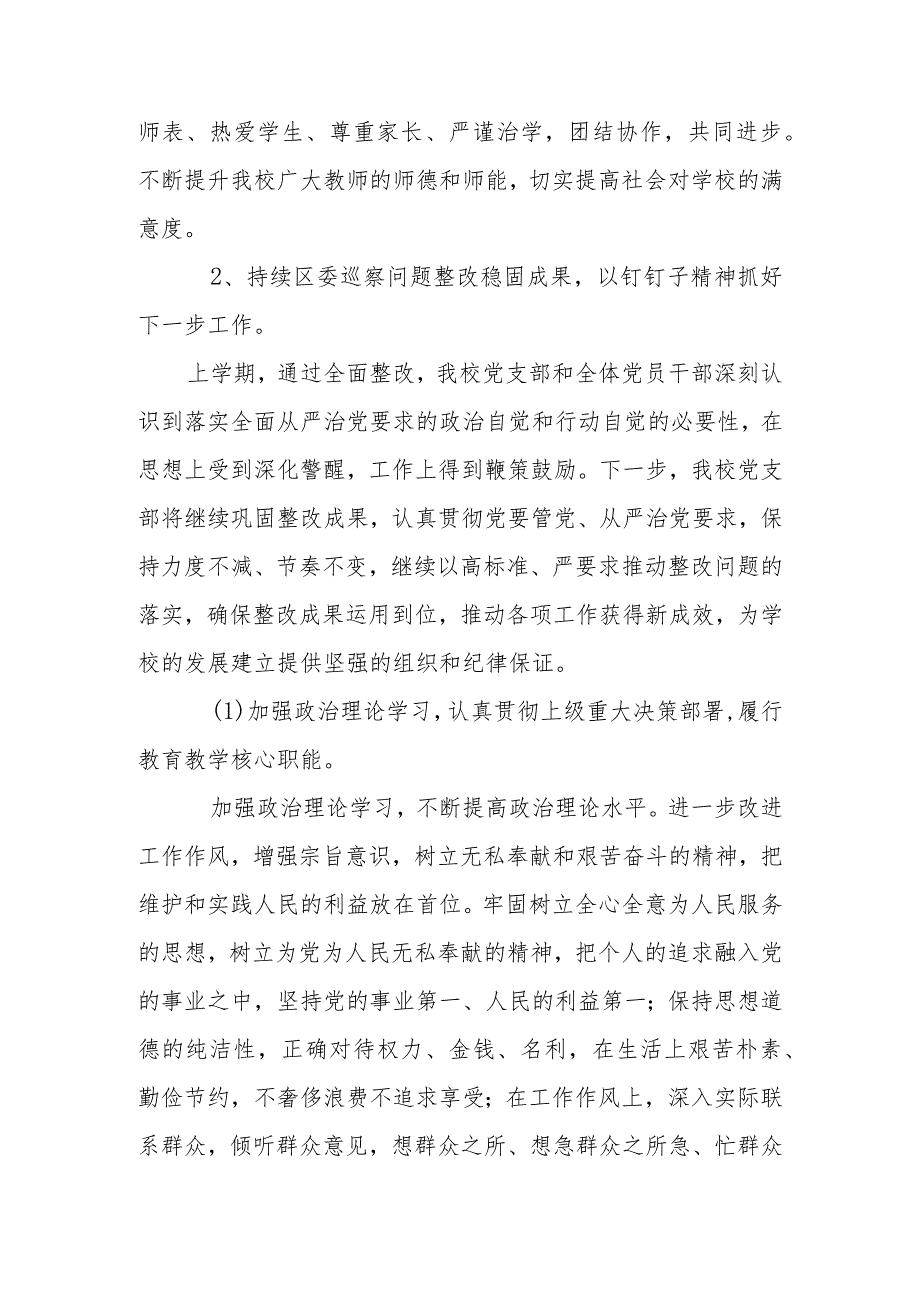 师表、热爱学生、尊重家长、严谨治学，团结协作，共同进步。
不断提升我校广大教师的师德和师能，切实提高社会对学校的满
意度。
2、持续区委巡察问题整改稳固成果，以钉钉子精神抓好
下一步工作。
上学期，通过全面整改，我校党支部和全体党员干部深刻认
识到落实全面从严治党要求的政治自觉和行动自觉的必要性，在
思想上受到深化警醒，工作上得到鞭策鼓励。下一步，我校党支
部将继续巩固整改成果，认真贯彻党要管党、从严治党要求，保
持力度不减、节奏不变，继续以高标准、严要求推动整改问题的
落实，确保整改成果运用到位，推动各项工作获得新成效，为学
校的发展建立提供坚强的组织和纪律保证。
(1)加强政治理论学习,认真贯彻上级重大决策部署,履行
教育教学核心职能。
加强政治理论学习，不断提高政治理论水平。进一步改进
工作作风，增强宗旨意识，树立无私奉献和艰苦奋斗的精神，把
维护和实践人民的利益放在首位。牢固树立全心全意为人民服务
的思想，树立为党为人民无私奉献的精神，把个人的追求融入党
的事业之中，坚持党的事业第一、人民的利益第一；保持思想道
德的纯洁性，正确对待权力、金钱、名利，在生活上艰苦朴素、
勤俭节约，不奢侈浪费不追求享受；在工作作风上，深入实际联
系群众，倾听群众意见，想群众之所、想急群众之所急、忙群众